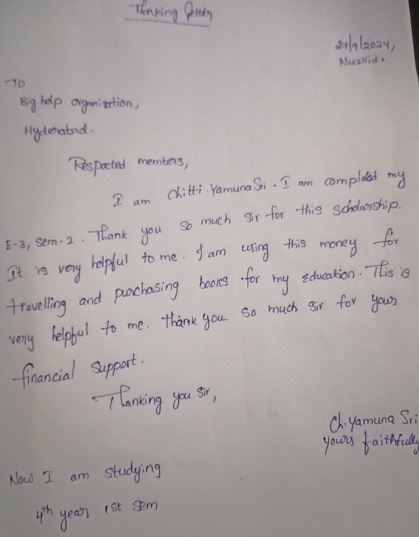 Thnking letter
27/9/2024,
Nuzvid.
To
Big help organization,
Hyderabad.
Respected members,
I am Chitti.YamunaSri. I am completed my
E-3, sem-2. Thank you so much sir for this scholarship.
It is very helpful to me. I am using this money for
travelling and purchasing books for my education. This is
very helpful to me. Thank you so much sir for your
financial support.
Thanking you sir,
Ch.Yamuna Sri
yours faithfully
Now I am studying
4th year 1st sem